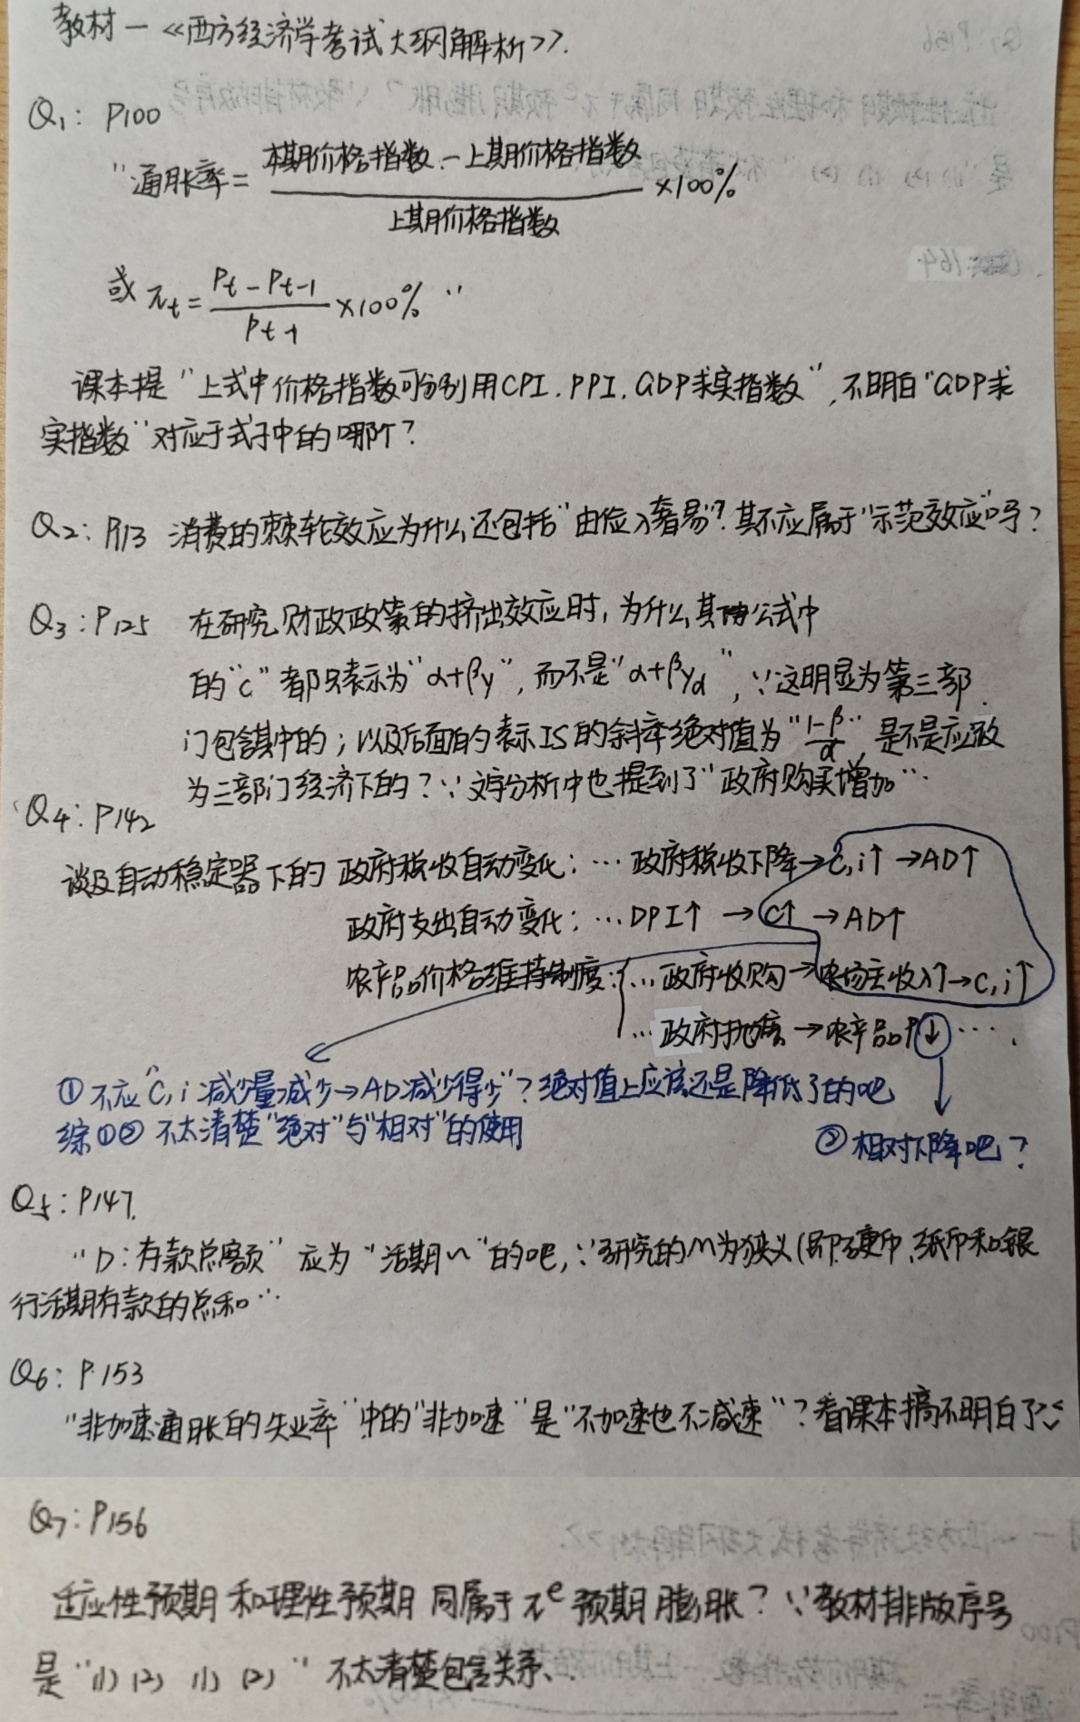 教材一《西方经济学考试大纲解析》.
Q1: P100
"通胀率= 本期价格指数-上期价格指数 ×100%
上期价格指数
或 πt = Pt-Pt-1 ×100% "
Pt-1
课本提"上式中价格指数可分别用CPI.PPI.GDP求实指数",不明白"GDP求
实指数"对应于式子中的哪个?
Q2: P113 消费的棘轮效应为什么还包括"由俭入奢易"?其不应属于"示范效应"吗?
Q3: P125 在研究财政政策的挤出效应时,为什么其公式中
的"c"都只表示为"α+βy",而不是"α+βyd",∵这明显为第三部
门包含其中的;以及后面的表示IS的斜率绝对值为"1-β/d"是不是应改
为二部门经济下的?∵文字分析中也提到了"政府购买增加"…
Q4: P142
谈及自动稳定器下的 政府税收自动变化:…政府税收下降→C,i↑→AD↑
政府支出自动变化:…DPI↑→C↑→AD↑
农产品价格维持制度:{…政府收购→农场主收入↑→C,i↑
…政府抛售→农产品P↓….
①不应"C,i减少量减少→AD减少得少"?绝对值上应该还是降低了的吧
综①② 不太清楚"绝对"与"相对"的使用
②相对下降吧?
Q5: P147.
"D:存款总额"应为"活期~"的吧,∵研究的M为狭义(即硬币、纸币和银
行活期存款的总和…
Q6: P.153
"非加速通胀的失业率"中的"非加速"是"不加速也不减速"?看课本搞不明白了
Q7: P156
适应性预期和理性预期同属于πe预期膨胀?∵教材排版序号
是"(1)(2)(1)(2)"不太清楚包含关系、